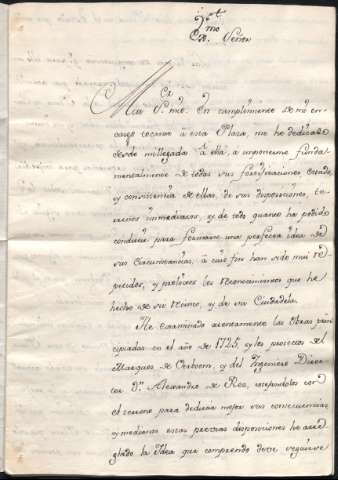 Ex.mo Señor
Muy S.r mio. En cumplimiento de mi en-
cargo tocante à esta Plaza, me he dedicado
desde mi llegada à ella, à imponerme funda-
mentalmente de todas sus fortificaciones, estado,
y consistencia de ellas, de sus disposiciones, te-
rrenos inmediatos, y de todo quanto ha podido
conducir para formarse una perfecta idea de
sus circunstancias, à cuio fin han sido mui re-
petidos, y prolixos los reconocimientos que he
hecho de su Recinto, y de su Ciudadela.
He examinado atentamente las Obras prin-
cipiadas en el año de 1725, y los proiectos del
Marques de Verboom, y del Ingeniero Direc-
tor D.n Alexandro de Rez, cotejandolos con
el terreno para deducir mejor sus consecuencias
y mediante estas precisas disposiciones he arre-
glado la Idea que comprendo deve seguirse